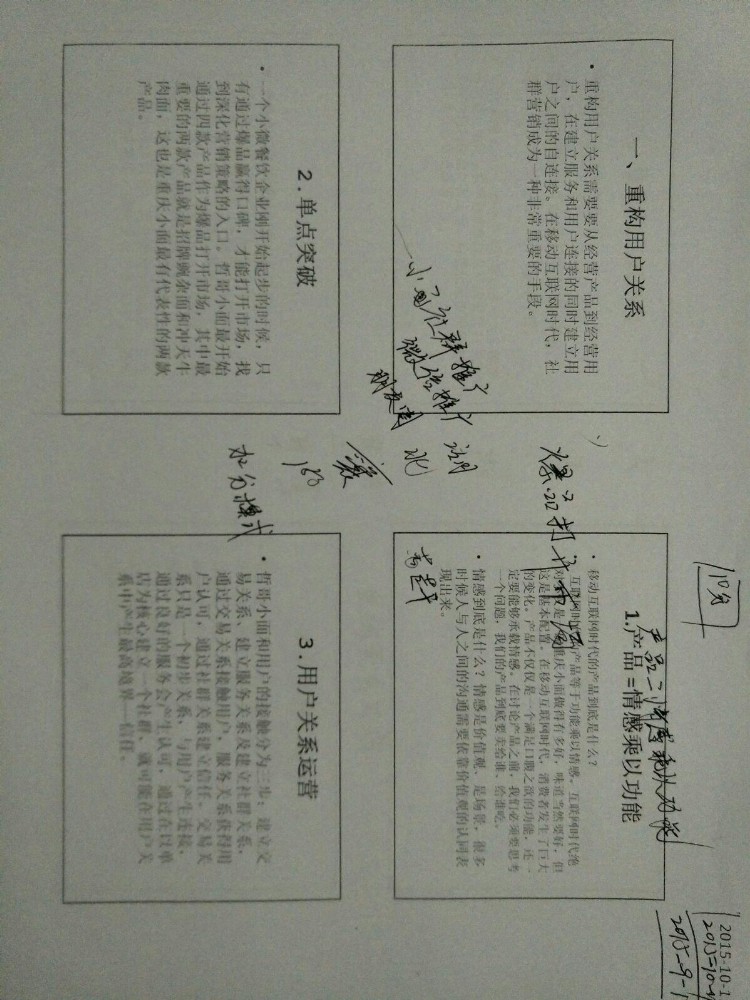 2015-10-1
2015-10-4
2015-9-1
10分
一、重构用户关系
• 重构用户关系需要要从经营产品到经营用
户，在建立服务和用户连接的同时建立用
户之间的自连接。在移动互联网时代，社
群营销成为一种非常重要的手段。
小圈社群推广
微信推广
朋友圈
1.产品=情感乘以功能
产品=情感乘以功能
• 移动互联网时代的产品到底是什么？
互联网时代的产品等于功能乘以情感。互联网时代绝
重庆小面做得有多好，味道当然要好，但
这是基本配置。在移动互联网时代，消费者发生了巨大
的变化，产品不仅仅是一个满足口腹之欲的功能，还一
定要能够承载情感。在讨论产品之前，我们必须要思考
一个问题，我们的产品到底要卖给谁、给谁吃。
• 情感到底是什么？情感是价值观、是场景，很多
时候人与人之间的沟通需要依靠价值观的认同表
现出来。
爆品打开市场
2.单点突破
• 一个小微餐饮企业刚开始起步的时候，只
有通过爆品赢得口碑，才能打开市场，找
到深化营销策略的入口。哲哥小面最开始
通过四款产品作为爆品打开市场，其中最
重要的两款产品就是招牌豌杂面和冲天牛
肉面，这也是重庆小面最有代表性的两款
产品。
加分模式
3.用户关系运营
• 哲哥小面和用户的接触分为三步：建立交
易关系、建立服务关系及建立社群关系。
通过交易关系接触用户，服务关系获得用
户认可，通过社群关系建立信任。交易关
系只是一个初步关系，与用户产生连接，
通过良好的服务会产生认可，通过在以单
店为核心建立一个社群，就可能在用户关
系中产生最高境界—信任。